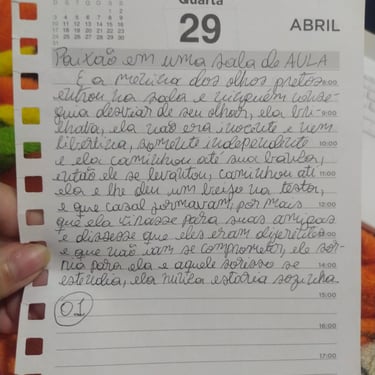 Quarta
29
ABRIL
Paixão em uma sala de AULA
E a menina dos olhos pretos
entrou na sala e ninguém conse-
guia desviar de seu olhar, ela bri-
lhava, ela não era inocente e nem
libertina, somente independente
e ela caminhou até sua banca,
então ele se levantou, caminhou até
ela e lhe deu um beijo na testa,
e que casal formavam, por mais
que ela risse para suas amigas
e dissesse que eles eram diferentes
e que não iam se comprometer, ele sor-
ria para ela e aquele sorriso se
estendia, ela nunca estaria sozinha.
01
8:00
9:00
10:00
11:00
12:00
13:00
14:00
15:00
16:00
17:00